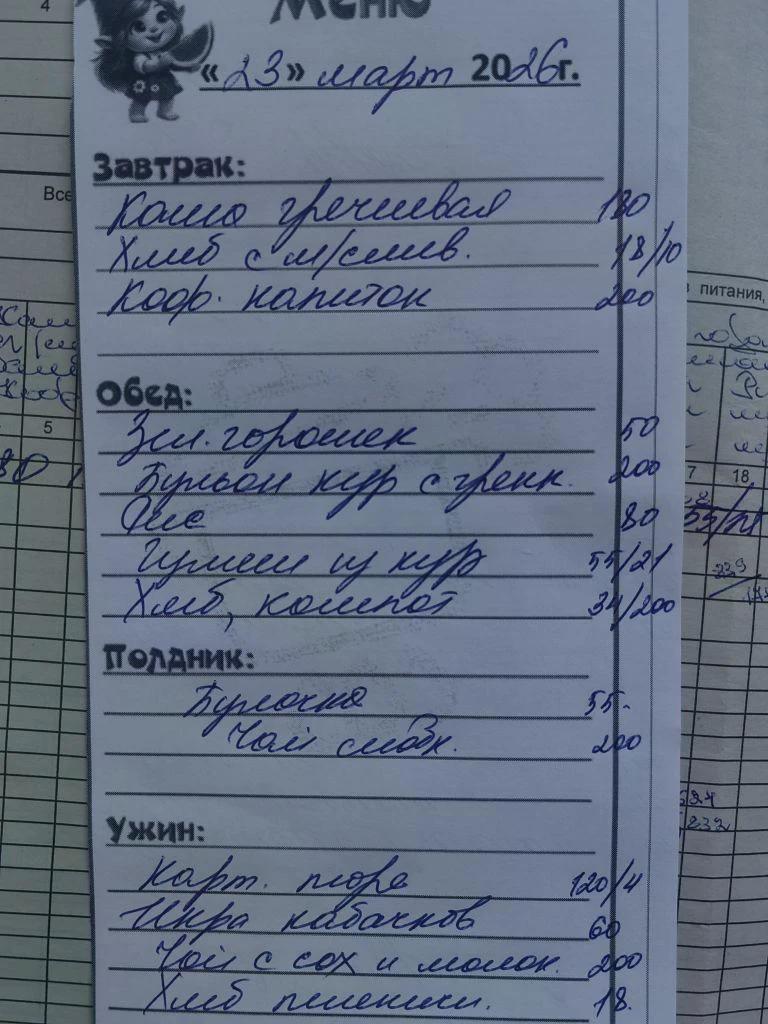 Меню
«23» март 2026г.
Завтрак:
Каша гречневая 180
Хлеб с м/слив. 18/10
Коф. напиток 200
Обед:
Зел. горошек 50
Бульон кур с гренк. 200
Рис 80
Гуляш из кур 55/21
Хлеб, компот 34/200
Полдник:
Булочка 55-
Чай слабк. 200
Ужин:
Карт. пюре 120/4
Икра кабачков 60
Чай с сах и молок. 200
Хлеб пшеничн. 18.
4
Все
5
80
питания,
7 18
55/21
239
624
232